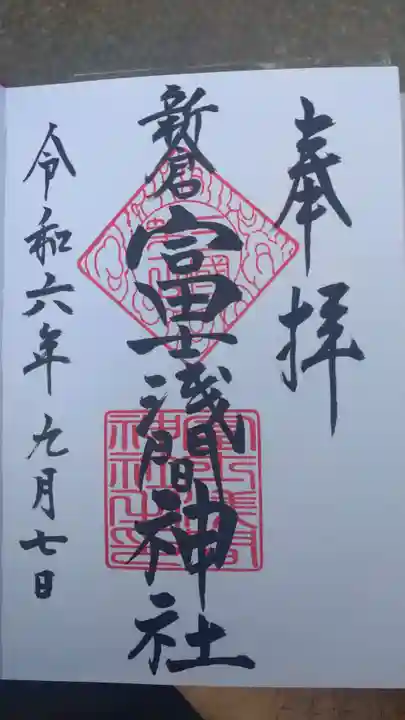 奉拝
新倉富士浅間神社
令和六年九月七日